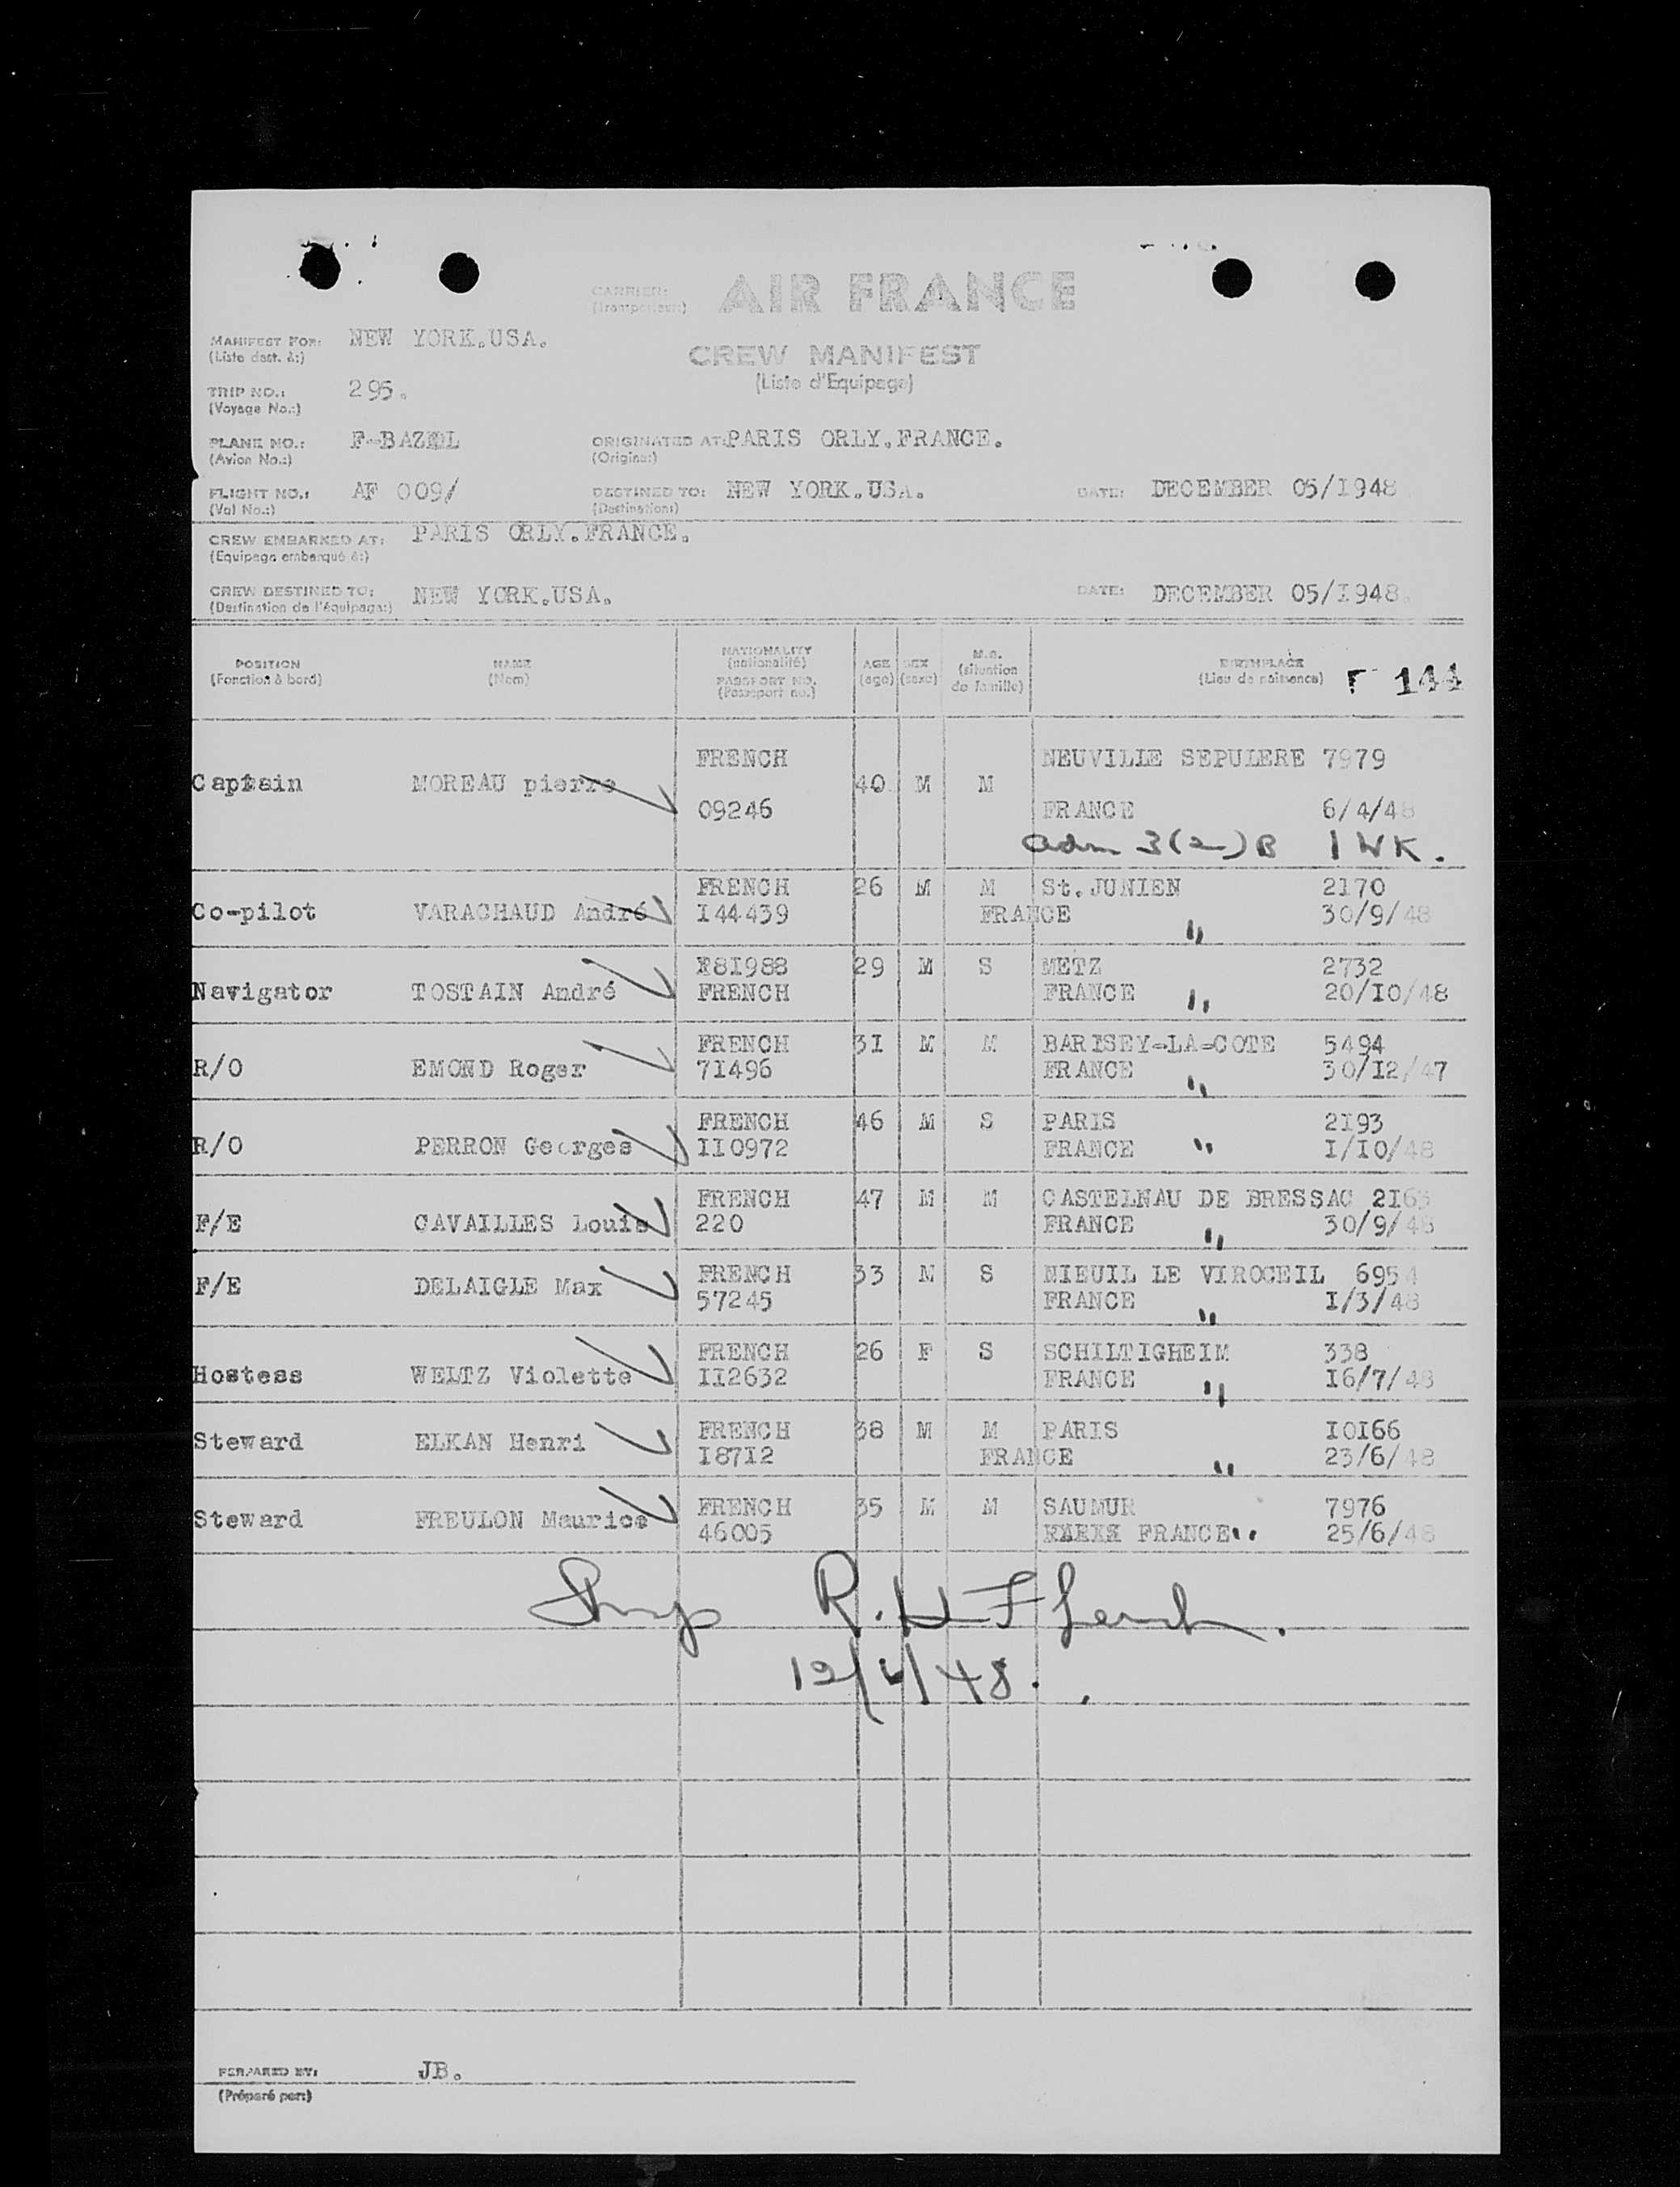 CARRIER: AIR FRANCE
(Transporteur:)
MANIFEST FOR: NEW YORK.USA.
(Liste dest. à:)
CREW MANIFEST
(Liste d'Equipage)
TRIP NO.: 295.
(Voyage No.:)
PLANE NO.: ORIGINATED AT: PARIS ORLY.FRANCE.
(Avion No.:) (Origine:)
FLIGHT NO.: AF 009/ DESTINED TO: NEW YORK.USA. DATE: DECEMBER 05/1948
(Vol No.:) (Destination:)
CREW EMBARKED AT: PARIS ORLY.FRANCE.
(Equipage embarqué à:)
CREW DESTINED TO: NEW YORK.USA. DATE: DECEMBER 05/1948.
(Destination de l'équipage:)
POSITION NAME NATIONALITY AGE SEX M.S. BIRTHPLACE
(Fonction à bord) (Nom) (nationalité) (age) (sexe) (situation de famille) (Lieu de naissance) 144
PASSPORT NO.
(Passeport no.)
FRENCH NEUVILLE SEPULERE 7979
Captain MOREAU pierre 40 M M
09246 FRANCE 6/4/48
adm 3(2)B 1 WK.
FRENCH 26 M M St.JUNIEN 2170
Co-pilot VARACHAUD André I44439 FRANCE 30/9/48
"
81988 29 M S METZ 2732
Navigator TOSTAIN André FRENCH FRANCE " 20/I0/48
FRENCH 3I M M BARISEY-LA-COTE 5494
R/O EMOND Roger 7I496 FRANCE " 30/I2/47
FRENCH 46 M S PARIS 2I93
R/O PERRON Georges II0972 FRANCE " I/I0/48
FRENCH 47 M M CASTELNAU DE BRESSAC 2I63
F/E CAVAILLES Louis 220 FRANCE " 30/9/48
FRENCH 33 M S NIEUIL LE VIROCEIL 6954
F/E DELAIGLE Max 57245 FRANCE " I/3/48
FRENCH 26 F S SCHILTIGHEIM 338
Hostess WELTZ Violette II2632 FRANCE " I6/7/48
FRENCH 38 M M PARIS I0I66
Steward ELKAN Henri I87I2 FRANCE " 23/6/48
FRENCH 35 M M SAUMUR 7976
Steward FREULON Maurice 46005 FRANCE " 25/6/48
R.H.F
PERPARED BY: JB.
(Préparé par:)